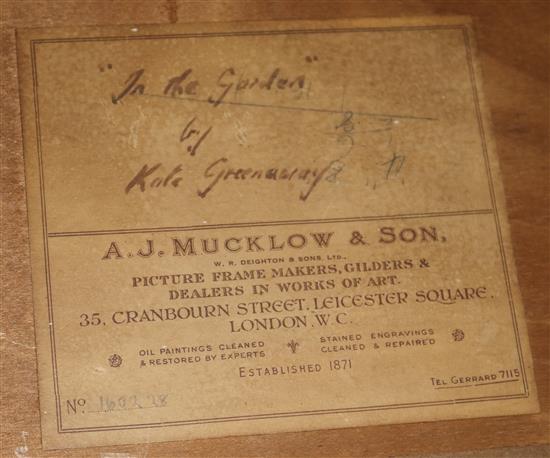 "In the Garden"
by
Kate Greenaway
A. J. MUCKLOW & SON,
W. R. DEIGHTON & SONS, LTD.,
PICTURE FRAME MAKERS, GILDERS &
DEALERS IN WORKS OF ART.
35, CRANBOURN STREET, LEICESTER SQUARE,
LONDON, W.C.
OIL PAINTINGS CLEANED
& RESTORED BY EXPERTS
STAINED ENGRAVINGS
CLEANED & REPAIRED
ESTABLISHED 1871
TEL GERRARD 7115
No.